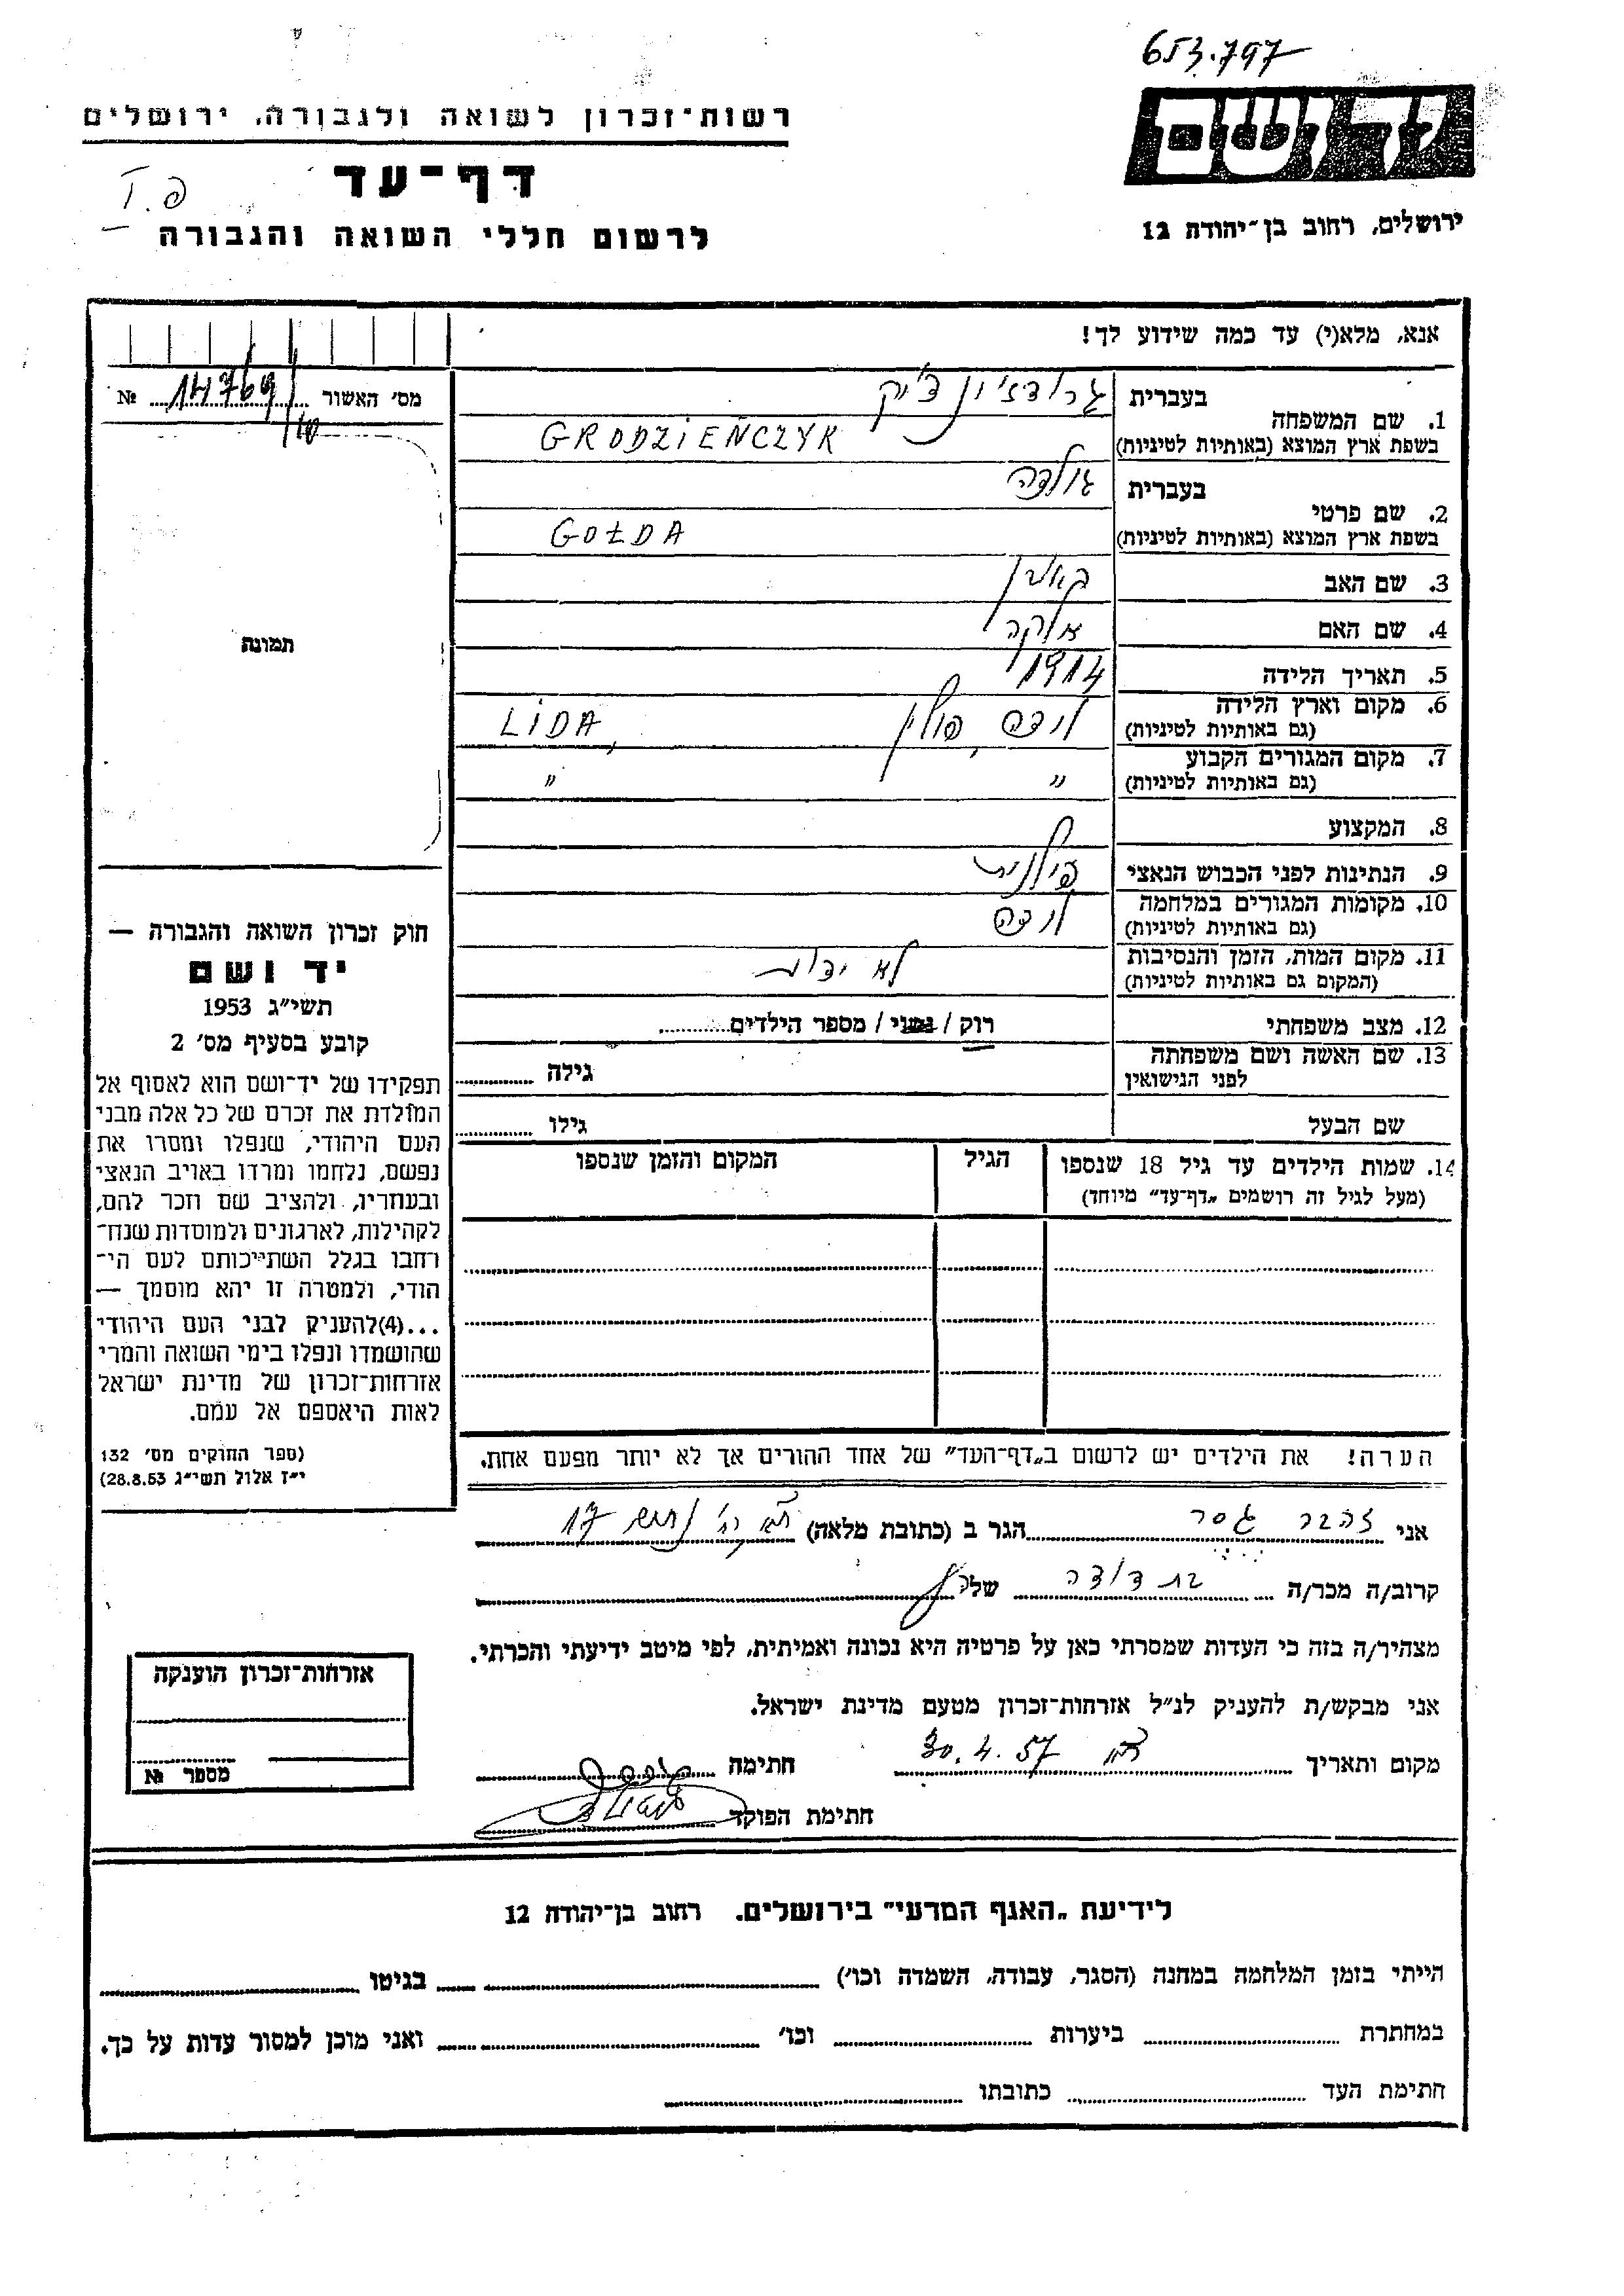 653.797
יד ושם
ירושלים, רחוב בן־יהודה 12
רשות־זכרון לשואה ולגבורה, ירושלים
דף־עד
לרשום חללי השואה והגבורה
אנא, מלא(י) עד כמה שידוע לך!
מס׳ האשור № 14769/10
תמונה
1. שם המשפחה
בעברית גרודז׳ינצ׳יק
בשפת ארץ המוצא (באותיות לטיניות) GRODZIEŃCZYK
2. שם פרטי
בעברית גולדה
בשפת ארץ המוצא (באותיות לטיניות) GOŁDA
3. שם האב
4. שם האם אלקה
5. תאריך הלידה 1914
6. מקום וארץ הלידה לידה, פולין LIDA,
(גם באותיות לטיניות)
7. מקום המגורים הקבוע
(גם באותיות לטיניות) " "
8. המקצוע
9. הנתינות לפני הכבוש הנאצי פולנית
10. מקומות המגורים במלחמה לידה
(גם באותיות לטיניות)
11. מקום המות, הזמן והנסיבות לא ידוע
(המקום גם באותיות לטיניות)
12. מצב משפחתי רוק / נשוי / מספר הילדים
13. שם האשה ושם משפחתה
לפני הנישואין גילה
שם הבעל גילו
14. שמות הילדים עד גיל 18 שנספו הגיל המקום והזמן שנספו
(מעל לגיל זה רושמים „דף־עד" מיוחד)
חוק זכרון השואה והגבורה —
יד ושם
תשי״ג 1953
קובע בסעיף מס׳ 2
תפקידו של יד־ושם הוא לאסוף אל
המולדת את זכרם של כל אלה מבני
העם היהודי, שנפלו ומסרו את
נפשם, נלחמו ומרדו באויב הנאצי
ובעוזריו, ולהציב שם וזכר להם,
לקהילות, לארגונים ולמוסדות שנח־
רחבו בגלל השתייכותם לעם הי־
הודי, ולמטרה זו יהא מוסמך —
...(4)להעניק לבני העם היהודי
שהושמדו ונפלו בימי השואה והמרי
אזרחות־זכרון של מדינת ישראל
לאות היאספם אל עמם.
(ספר החוקים מס׳ 132
י״ז אלול תשי״ג 28.8.53)
הערה! את הילדים יש לרשום ב„דף־העד" של אחד ההורים אך לא יותר מפעם אחת.
אני זהבה גסר הגר ב (כתובת מלאה) 17
קרוב/ה מכר/ה בת דודה של
מצהיר/ה בזה כי העדות שמסרתי כאן על פרטיה היא נכונה ואמיתית, לפי מיטב ידיעתי והכרתי.
אני מבקש/ת להעניק לנ״ל אזרחות־זכרון מטעם מדינת ישראל.
מקום ותאריך 30.4.57 חתימה
חתימת הפוקד
אזרחות־זכרון הוענקה
מספר №
לידיעת „האגף המדעי" בירושלים. רחוב בן־יהודה 12
הייתי בזמן המלחמה במחנה (הסגר, עבודה, השמדה וכו׳) בגיטו
במחתרת ביערות וכו׳ ואני מוכן למסור עדות על כך.
חתימת העד כתובתו